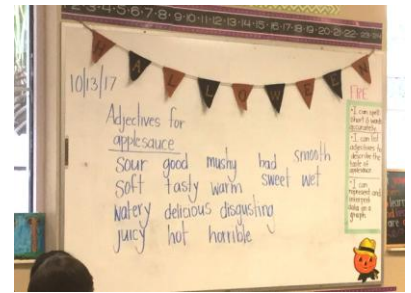 2·3·4·5·6·7·8·9·10·11·12·13·14·15·16·17·18·19·20·21·22
HALLOWEEN
10/13/17
Adjectives for
applesauce
sour good mushy bad smooth
soft tasty warm sweet wet
watery delicious disgusting
juicy hot horrible
FIRE
•I can spell
short
words
accurately.
•I can list
adjectives to
describe the
taste of
•I can
represent and
interpret
data on a
graph.